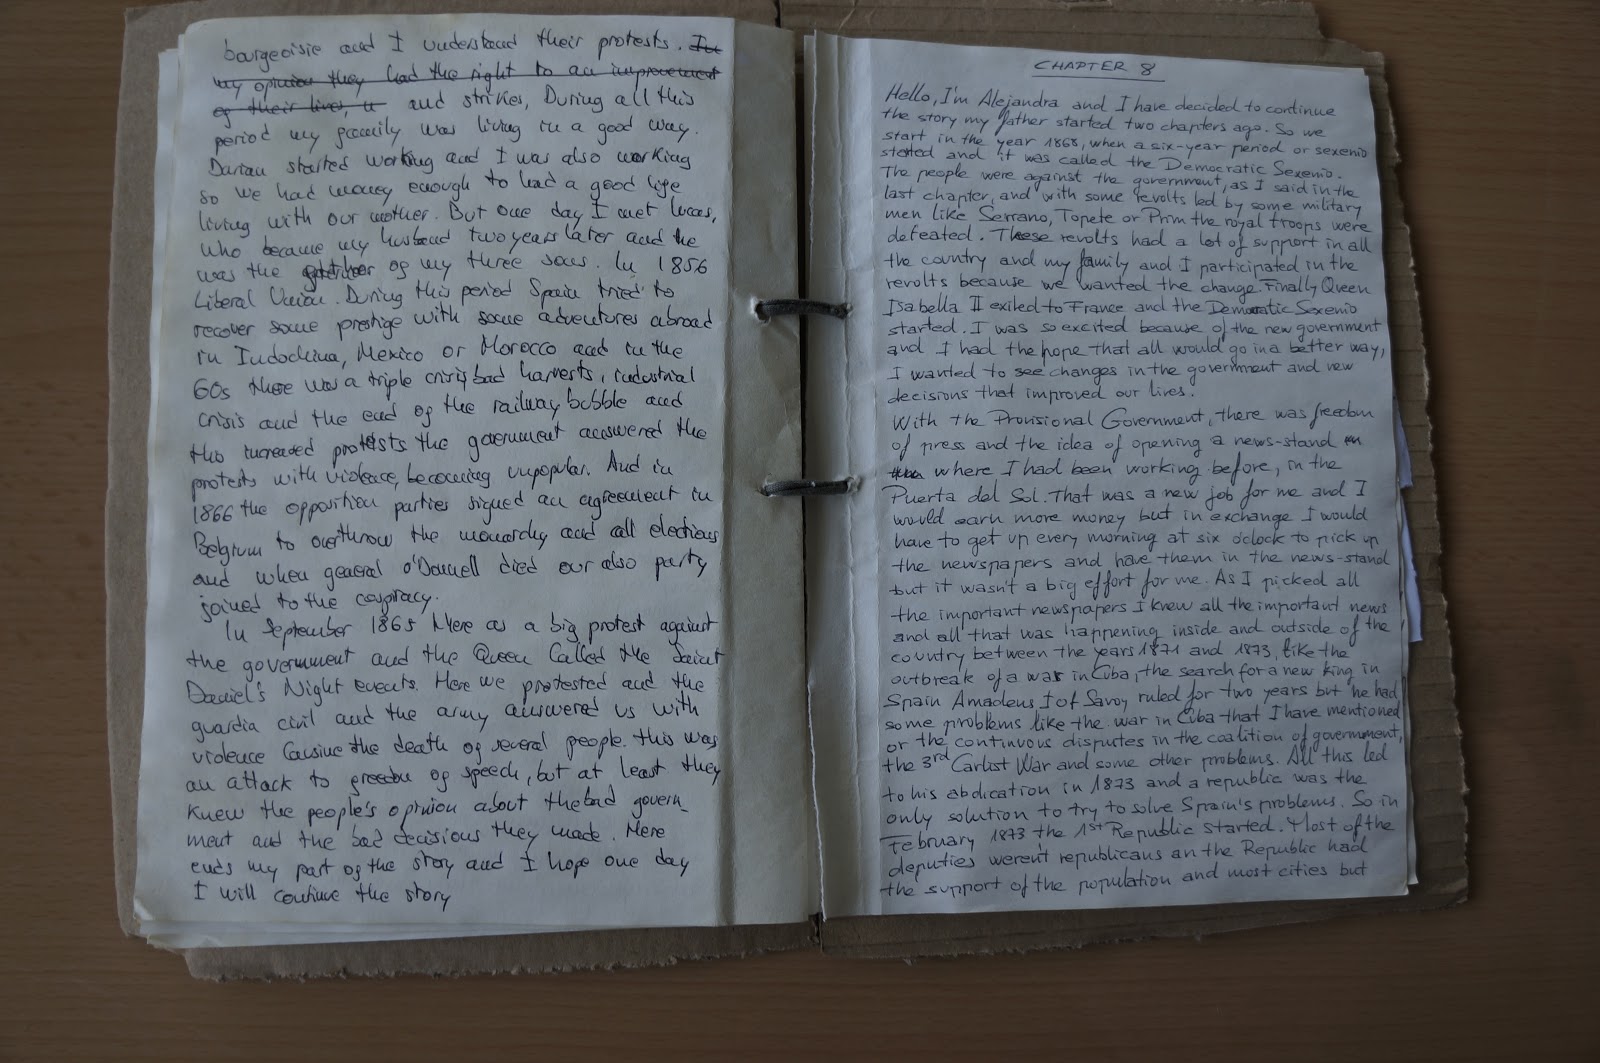 bourgeoisie and I understand their protests. In
my opinion they had the right to an improvement
of their lives, u and strikes, During all this
period my family was living in a good way.
Darian started working and I was also working
so we had money enough to had a good life
living with our mother. But one day I met Lucas,
who became my husband two years later and he
was the of my three sons. In 1856
Liberal Union. During this period Spain tried to
recover some prestige with some adventures abroad
in Indochina, Mexico or Morocco and in the
60s there was a triple crisis bad harvests, industrial
crisis and the end of the railway bobble and
this increased protests the government answered the
protests with violence, becoming unpopular. And in
1866 the opposition parties signed an agreement in
Belgium to overthrow the monarchy and call elections
and when general O'Donnell died our also party
joined to the cospiracy.
In September 1865 Here as a big protest against
the government and the Queen called the Saint
Daniel's Night events. Here we protested and the
guardia civil and the army answered us with
violence causine the death of several people. this was
an attack to freedom of speech, but at least they
knew the people's opinion about the bad govern_
ment and the bad decisions they made. Here
ends my part of the story and I hope one day
I will continue the story
CHAPTER 8
Hello, I'm Alejandra and I have decided to continue
the story my father started two chapters ago. So we
start in the year 1868, when a six-year period or sexenio
started and it was called the Democratic Sexenio.
The people were against the government, as I said in the
last chapter, and with some revolts led by some military
men like Serrano, Topete or Prim the royal troops were
defeated. These revolts had a lot of support in all
the country and my family and I participated in the
revolts because we wanted the change. Finally Queen
Isabella II exiled to France and the Democratic Sexenio
started. I was so excited because of the new government
and I had the hope that all would go in a better way,
I wanted to see changes in the government and new
decisions that improved our lives.
With the Provisional Government, there was freedom
of press and the idea of opening a news-stand
where I had been working before, in the
Puerta del Sol. That was a new job for me and I
would earn more money but in exchange I would
have to get up every morning at six o'clock to pick up
the newspapers and have them in the news-stand
but it wasn't a big effort for me. As I picked all
the important newspapers I knew all the important news
and all that was happening inside and outside of the
country between the years 1871 and 1873, like the
outbreak of a war in Cuba, the search for a new king in
Spain Amadeus I of Savoy ruled for two years but he had
some problems like the war in Cuba that I have mentioned
or the continuous disputes in the coalition of government,
the 3rd Carlist War and some other problems. All this led
to his abdication in 1873 and a republic was the
only solution to try to solve Spain's problems. So in
February 1873 the 1st Republic started. Most of the
deputies weren't republicans an the Republic had
the support of the population and most cities but